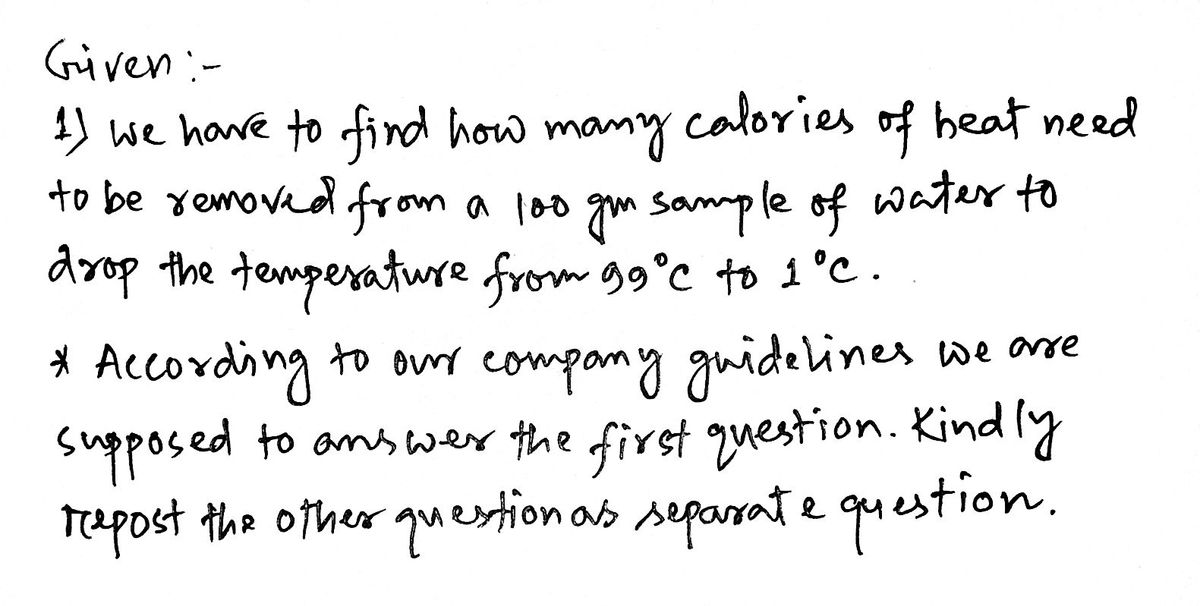 Given :-
1) we have to find how many calories of heat need
to be removed from a 100 gm sample of water to
drop the temperature from 99°C to 1°C.
* According to our company guidelines we are
supposed to answer the first question. Kindly
repost the other question as separate question.